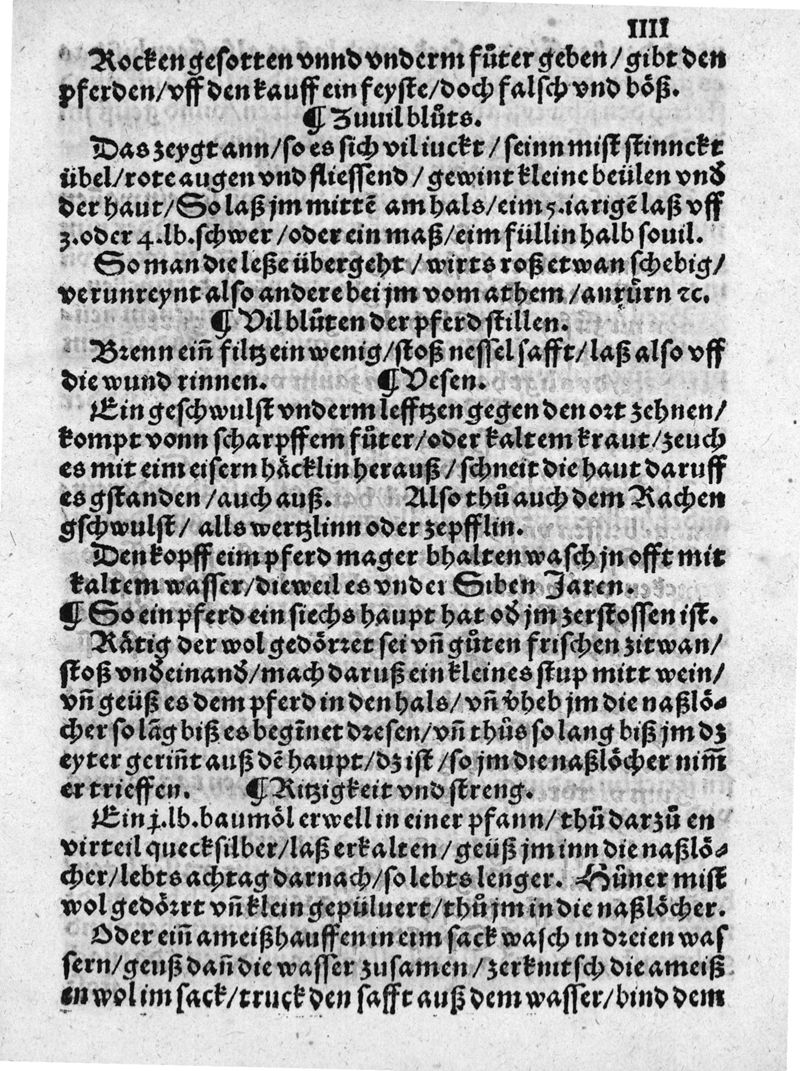 IIII
Rocken gesotten vnnd vnderm fůter geben/gibt den
pferden/vff den kauff ein feyste/doch falsch vnd böß.
¶ Zuuil blůts.
Das zeygt ann/so es sich vil iuckt/seinn mist stinnckt
übel/rote augen vnd fliessend/gewint kleine beülen vnd
der haut/So laß jm mittē am hals/eim 5.iarigē laß vff
3.oder 4.lb.schwer/oder ein maß/eim füllin halb souil.
So man die leße übergeht/wirts roß etwan schebig/
verunreynt also andere bei jm vom athem/anrürn ꝛc.
¶ Vil blůten der pferd stillen.
Brenn eiñ filtz ein wenig/stoß nessel safft/laß also vff
die wund rinnen. ¶ Vesen.
Ein geschwulst vnderm lefftzen gegen den ort zehnen/
kompt vonn scharpffem fůter/oder kaltem kraut/zeuch
es mit eim eisern häcklin herauß/schneit die haut daruff
es gstanden/auch auß. Also thů auch dem Rachen
gschwulst/ alls wertzlinn oder zepfflin.
Den kopff eim pferd mager bhalten wasch jn offt mit
kaltem wasser/dieweil es vnder Siben Jaren.
¶ So ein pferd ein siechs haupt hat od jm zerstossen ist.
Rätig der wol gedörret sei vñ gůten frischen zitwan/
stoß vndeinand/mach daruß ein kleines stup mitt wein/
vñ geüß es dem pferd in den hals/vñ v̄heb jm die naßlö⸗
cher so lāg biß es begiñet dresen/vñ thůs so lang biß jm dz
eyter geriñt auß dē haupt/dz ist/so jm die naßlöcher nim̄
er trieffen. ¶ Ritzigkeit vnd streng.
Ein j.lb.baumöl erwell in einer pfann/thů darzů en
virteil quecksilber/laß erkalten/geüß jm inn die naßlö⸗
cher/lebts achtag darnach/so lebts lenger. Hüner mist
wol gedörrt vñ klein gepüluert/thů jm in die naßlöcher.
Oder eiñ ameißhauffen in eim sack wasch in dreien was
sern/geuß dañ die wasser zusamen/zerknitsch die ameiß
en wol im sack/truck den safft auß dem wasser/bind dem